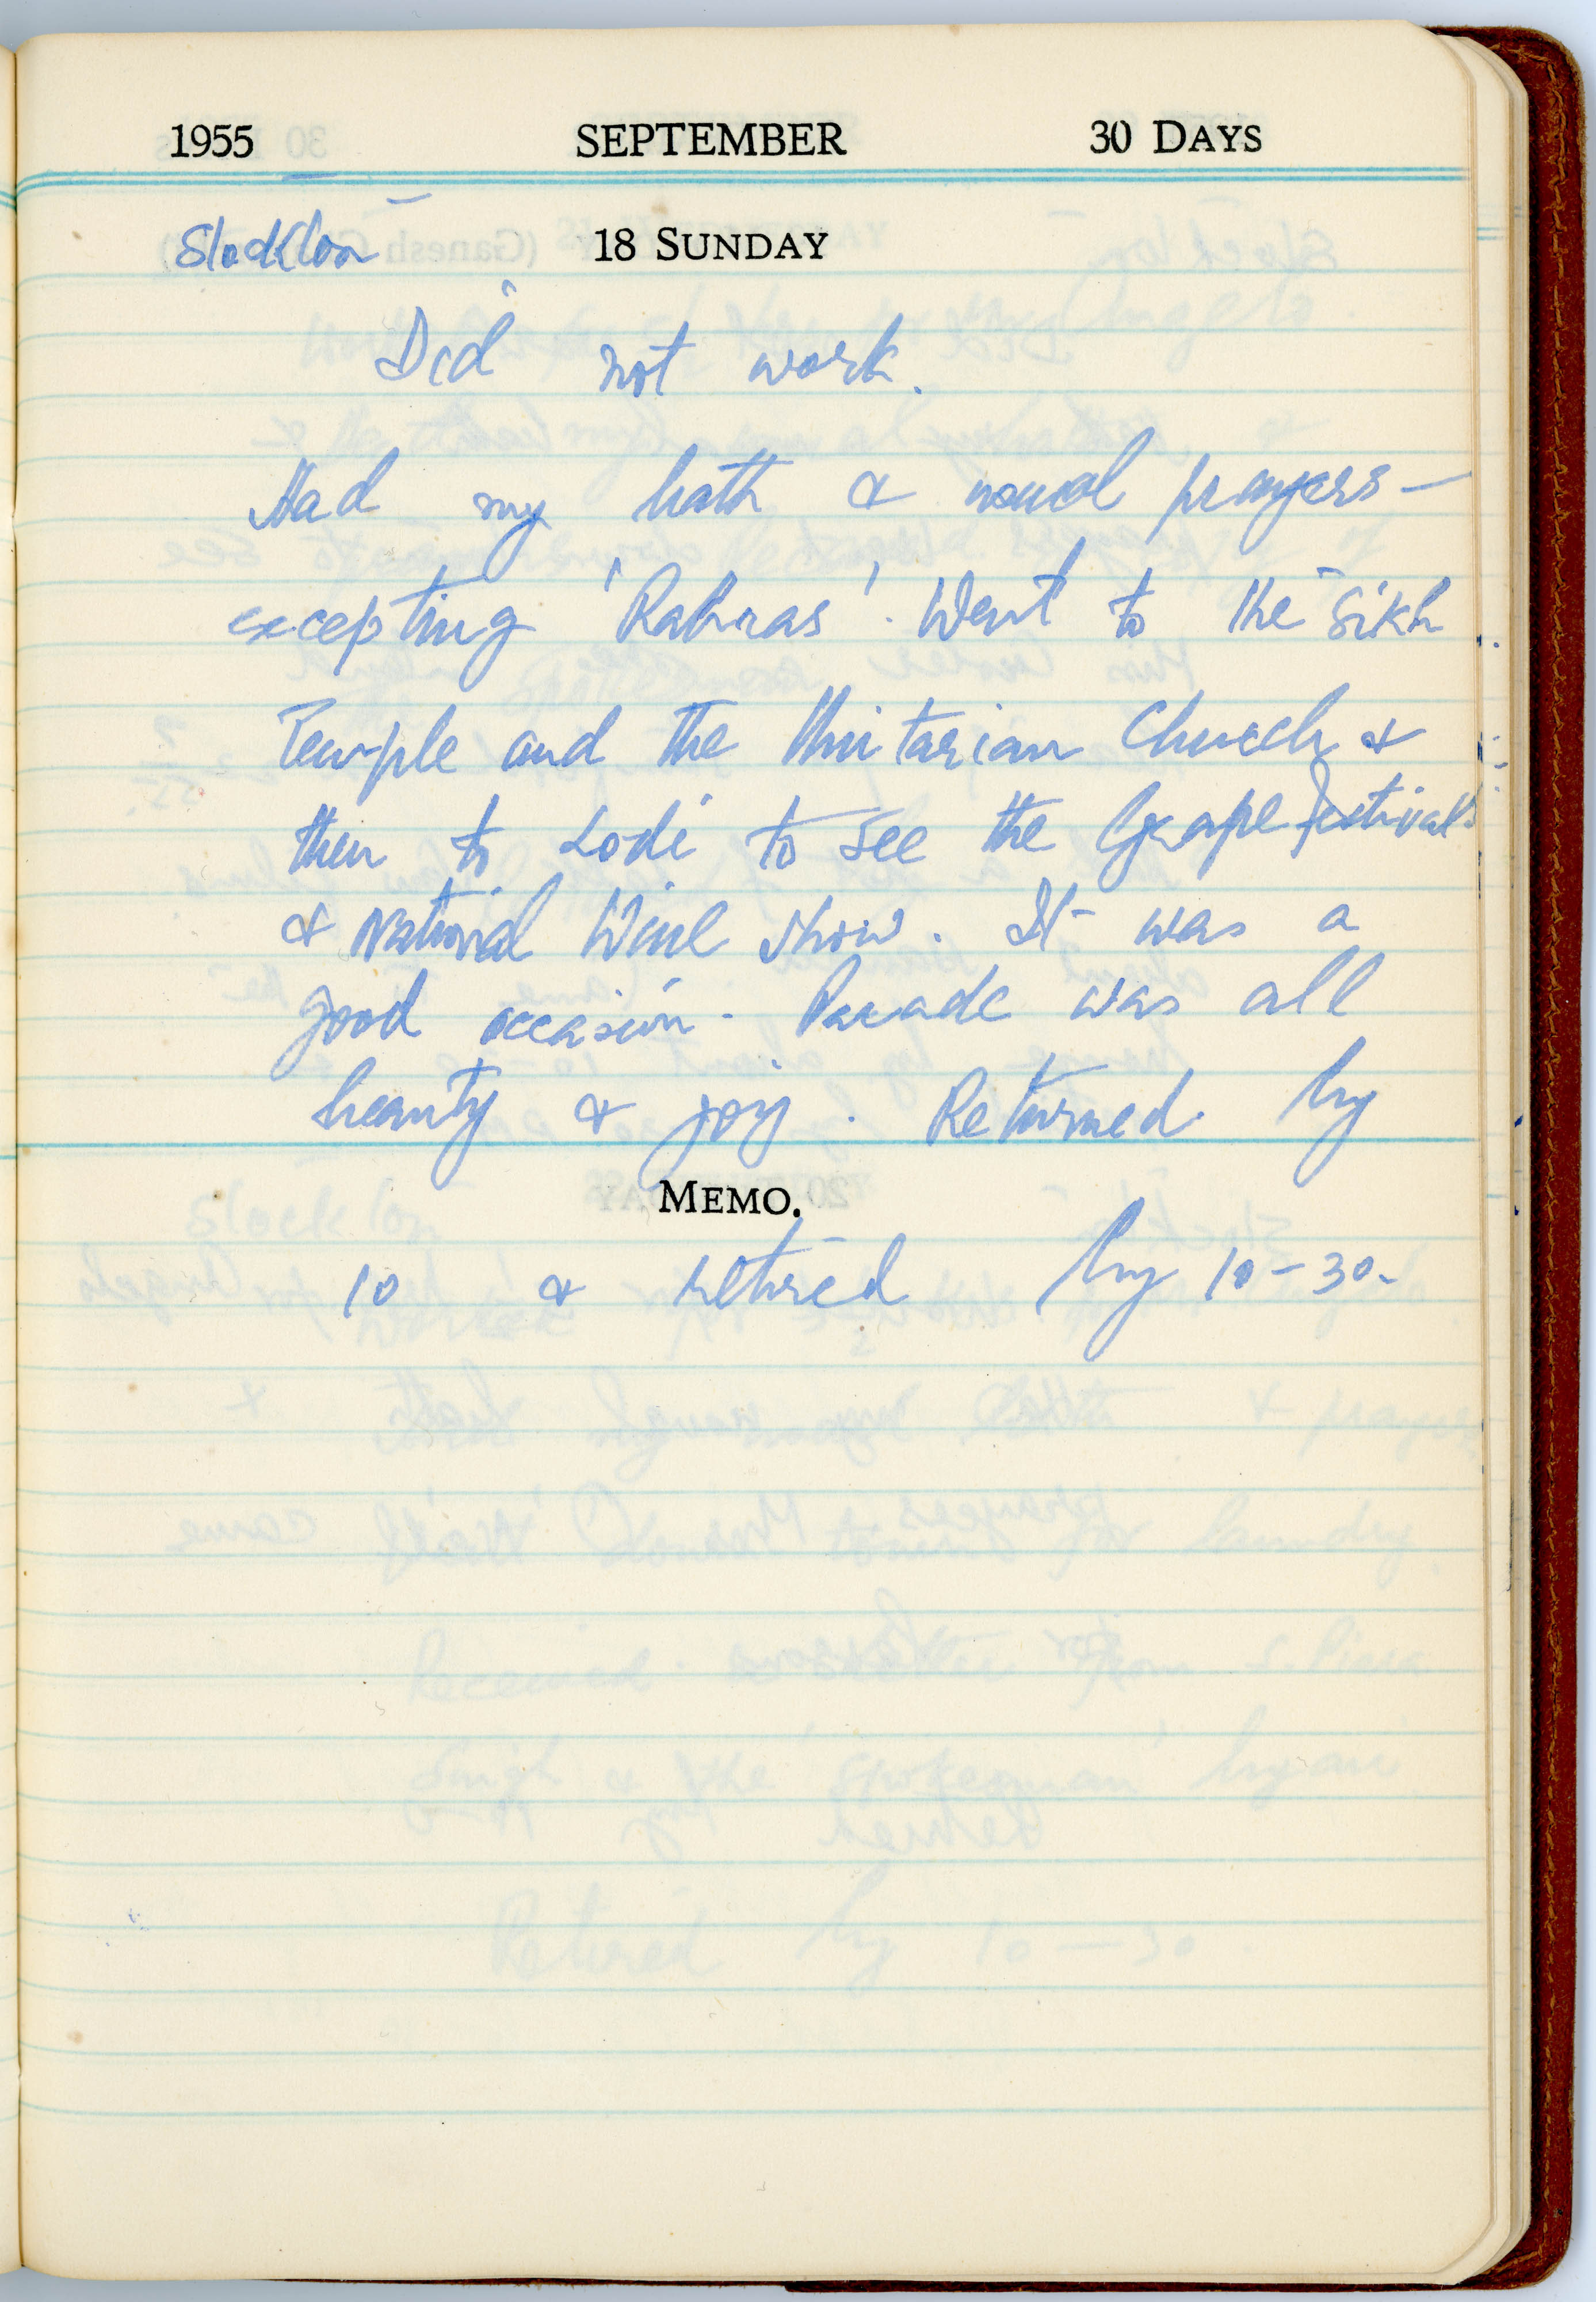 1955 SEPTEMBER 30 DAYS
Stockton 18 SUNDAY
Did not work.
Had my bath & usual prayers —
excepting 'Rahras'. Went to the Sikh
Temple and the Unitarian Church &
then to Lodi to see the Grape festival
& National Wine Show. It was a
good occasion. Parade was all
beauty & joy. Returned by
MEMO.
10 & retired by 10-30.